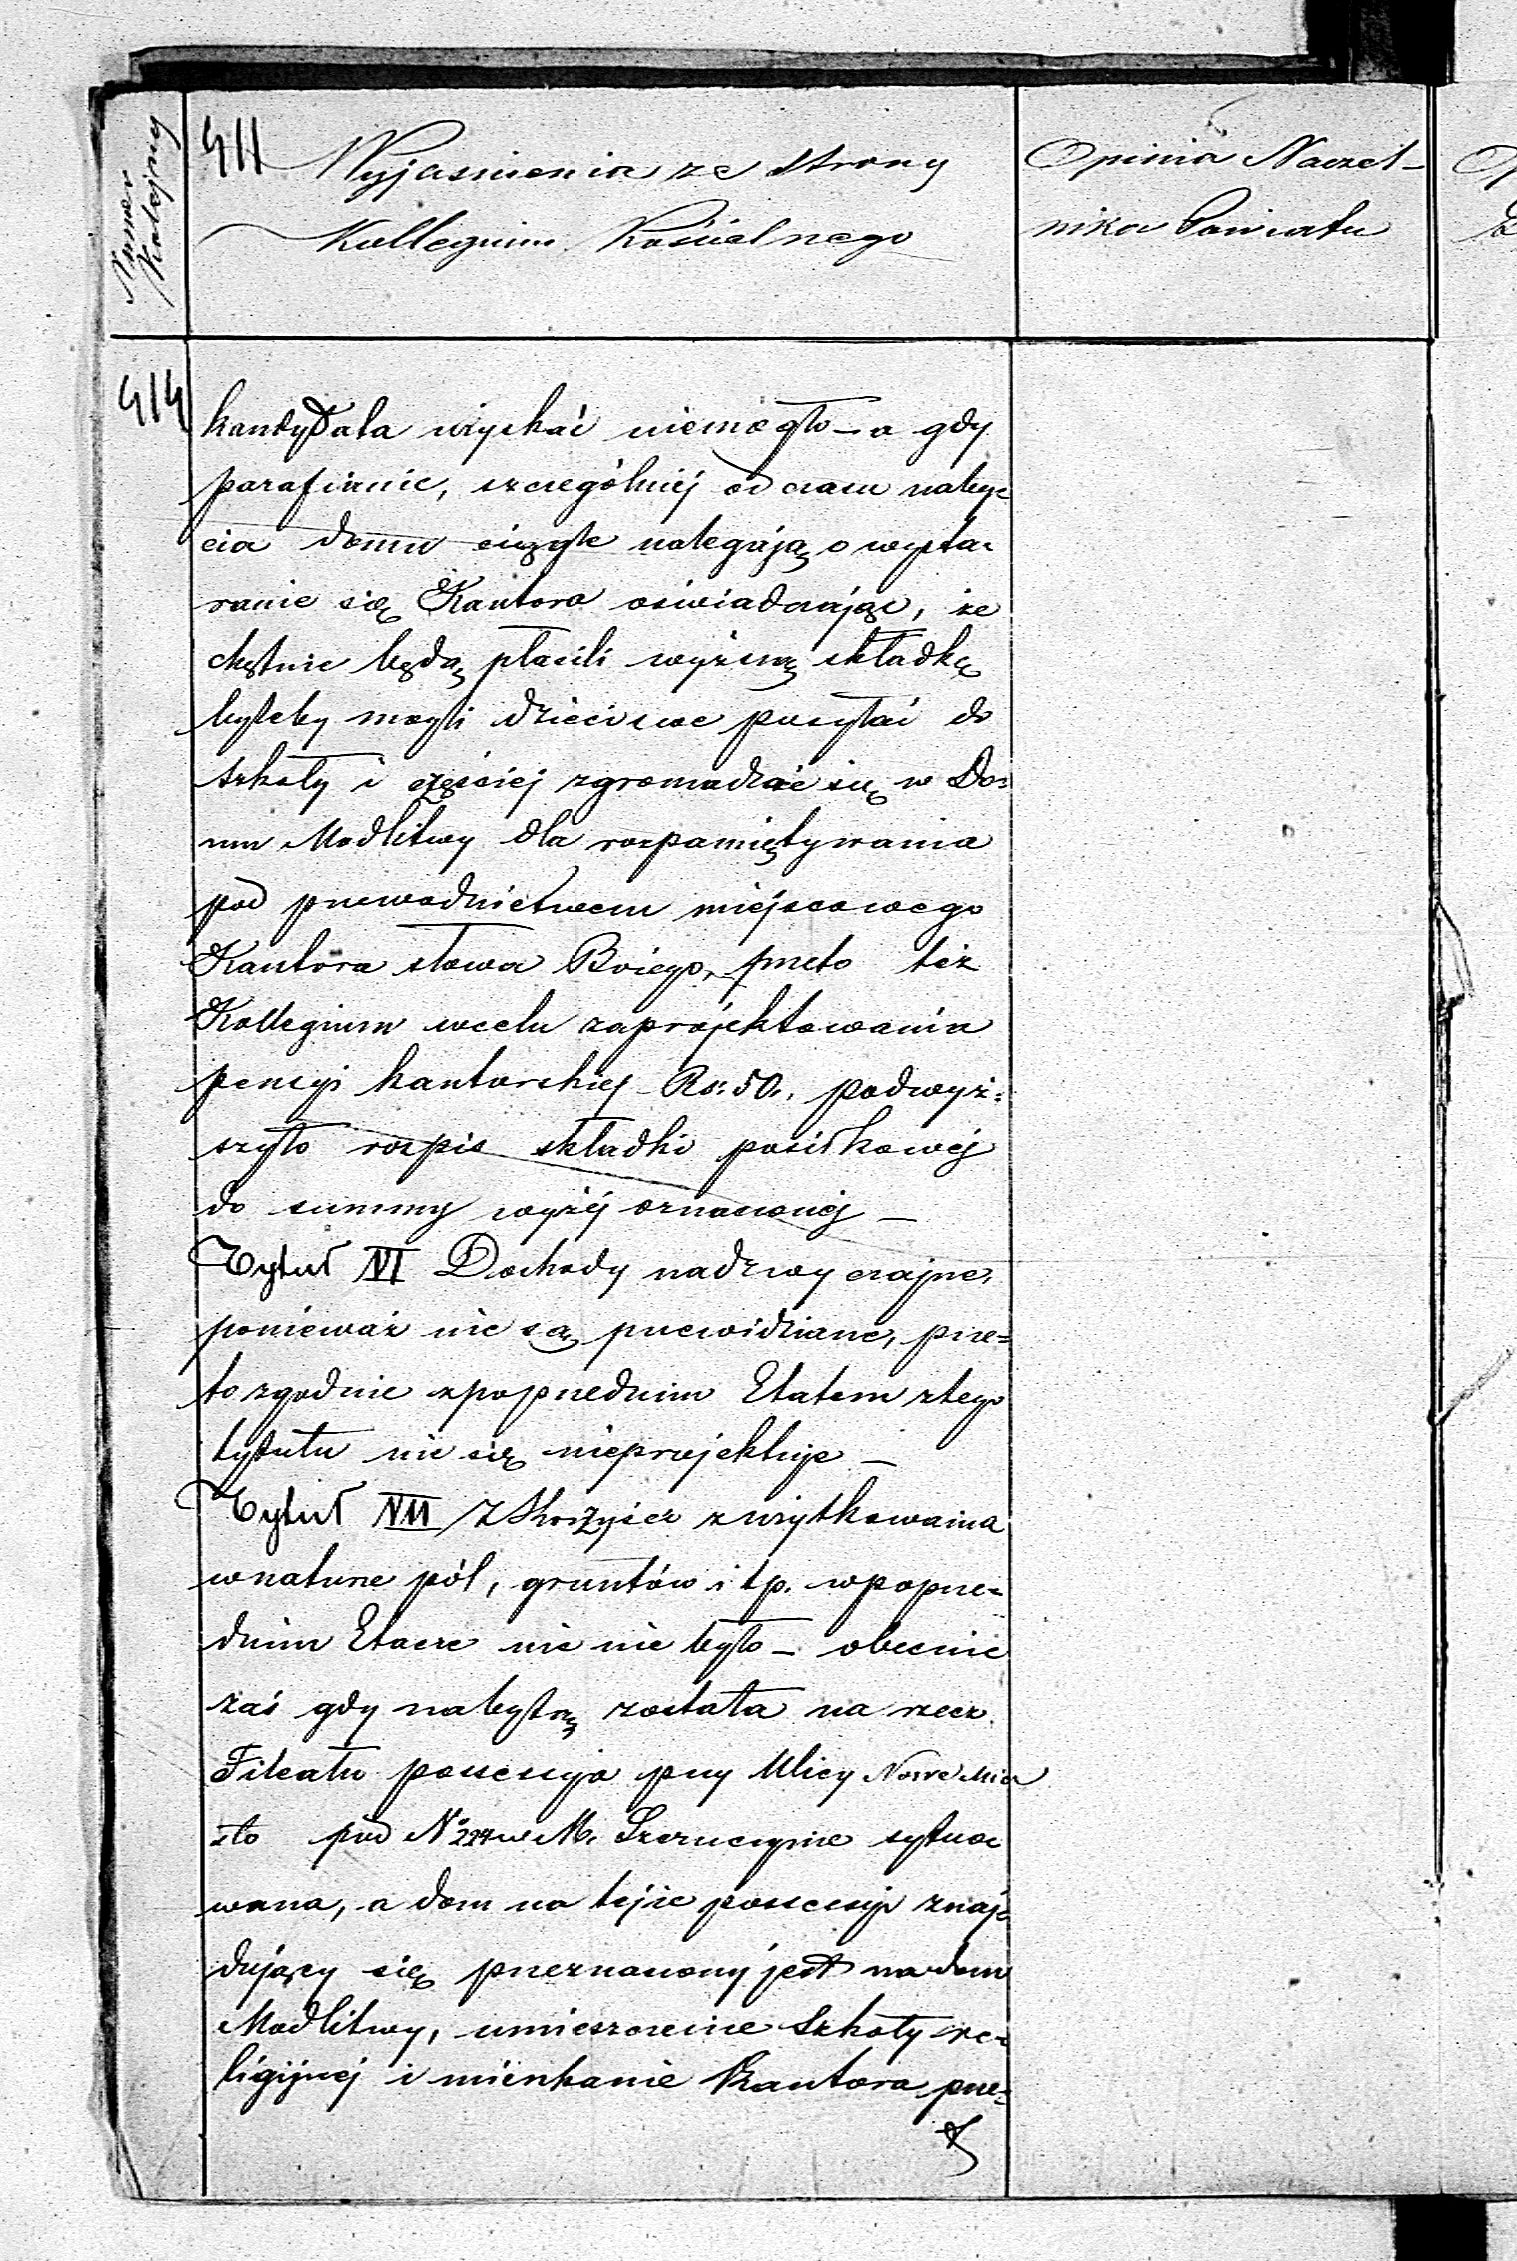 Numer Kolejny
411 Wyjasnienia ze strony
Kollegium Kościelnego
Opinia Naczel-
nika Powiatu
414
kandydata uzyskać niemogło – a gdy
parafianie, szczególniej od czasu naby-
cia domu ciągle nalegają o wysta-
ranie się Kantora oświadczając, że
chętnie będą płacili wyższą składkę
byleby mogli dzieci swe posyłać do
szkoły i częściej zgromadzać się w Do-
mu Modlitwy dla rozpamiętywania
pod przewodnictwem miejscowego
Kantora słowa Bożego, przeto też
Kollegium wcelu zaprojektowania
pensyi kantorskiej Rs: 50., podwyż-
szyło rozpis składki posiłkowej
do summy wyżej oznaczonej –
Tytuł VI Dochody nadzwyczajne,
ponieważ nie są przewidziane, prze-
to zgodnie zpoprzednim Etatem ztego
tytułu nic się nieprojektuje –
Tytuł VII Z Korzyści z użytkowania
wnaturze pól, gruntów i t p. wpoprze-
dnim Etacie nic nie było – obecnie
zaś gdy nabytą została na rzecz
Filiału possessyja przy Ulicy Nowe Mia
sto pod No 224 w M. Szczuczynie sytuo
wana, a dom na tejże possessyi znaj-
dujący się przeznaczony jest na dom
Modlitwy, umieszczenie Szkoły re-
ligijnej i mieszkanie Kantora, prze-